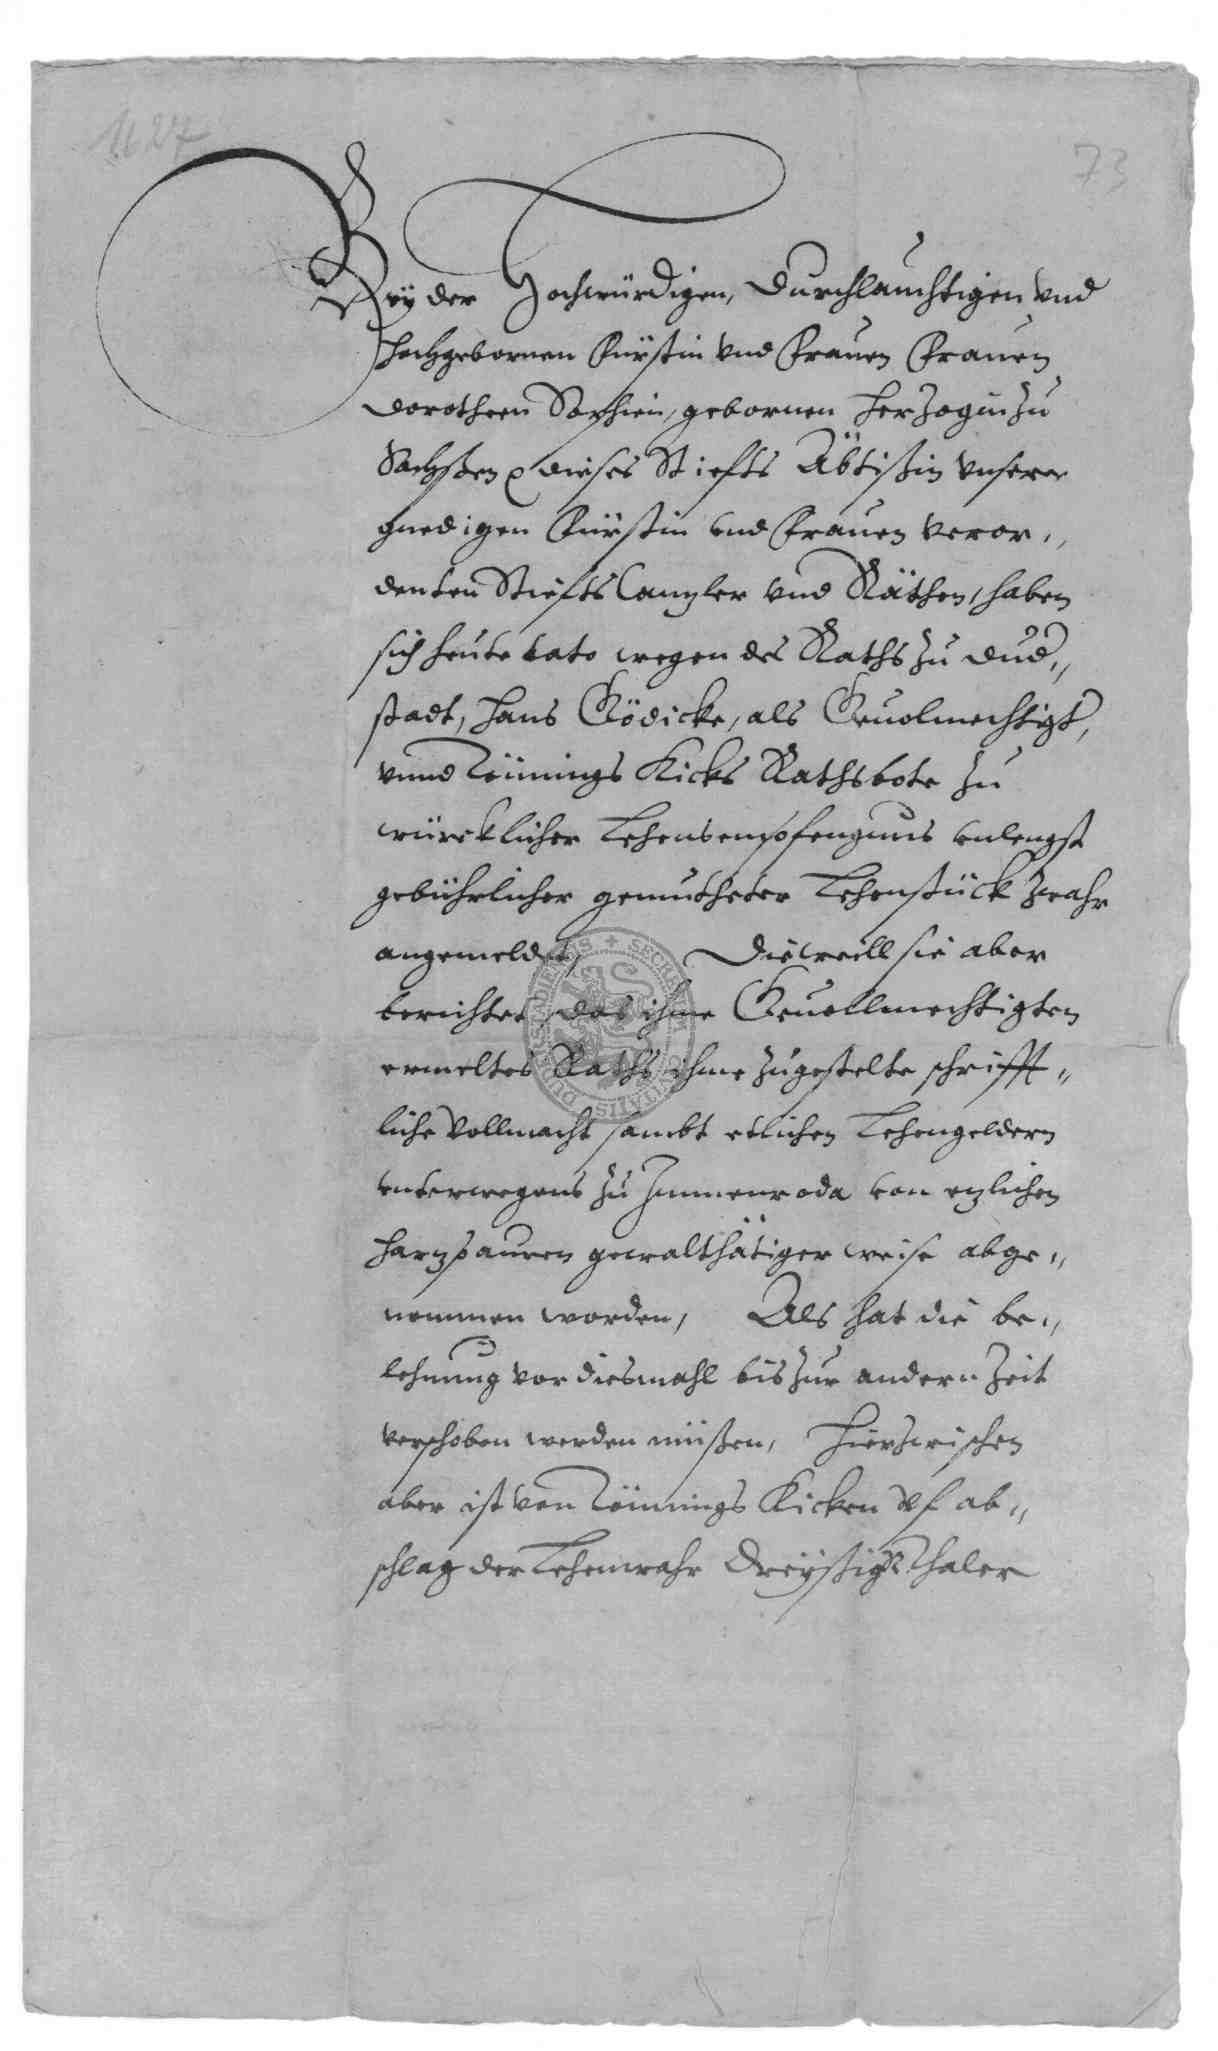 1627
73
Bey der Hochwürdigen, Durchlauchtigen vnd
hochgebornen Fürstin vnd Frauen Frauen
Dorotheen Sophien, gebornen Herzogin zu
Sachßen dieses Stiefts Äbtißin vnserer
gnedigen Fürstin vnd Frauen veror„
denten Stiefts Canzler vnd Räthen, haben
sich heute dato wegen des Raths zu Dud„
stadt, Hans Gödicke, als Gevolmechtigt,
vnnd Tönnings Kicks Rathsbote zu
würcklicher Lehensempfengnus vnlengst
gebührlicher gemutheter Lehenstück zwahr
angemeldet, Dieweill sie aber
berichtet, das ihme Gevollmechtigten
ermeltes Raths ihme zugestelte schrifft„
liche Vollmacht sambt etlichen Lehengeldern
vnterwegens zu Immenroda von etzlichen
Hartzbauren gewalthätiger weise abge„
nommen worden, Als hat die be„
lehnung vor diesmahl bis zur andern Zeit
verschoben werden müßen, Hierzwischen
aber ist von Tönnings Kicken vf ab„
schlag der Lehenwahr Dreyßigk Thaler
SECRETUM CIVITATIS DUDERSTADIENSIS